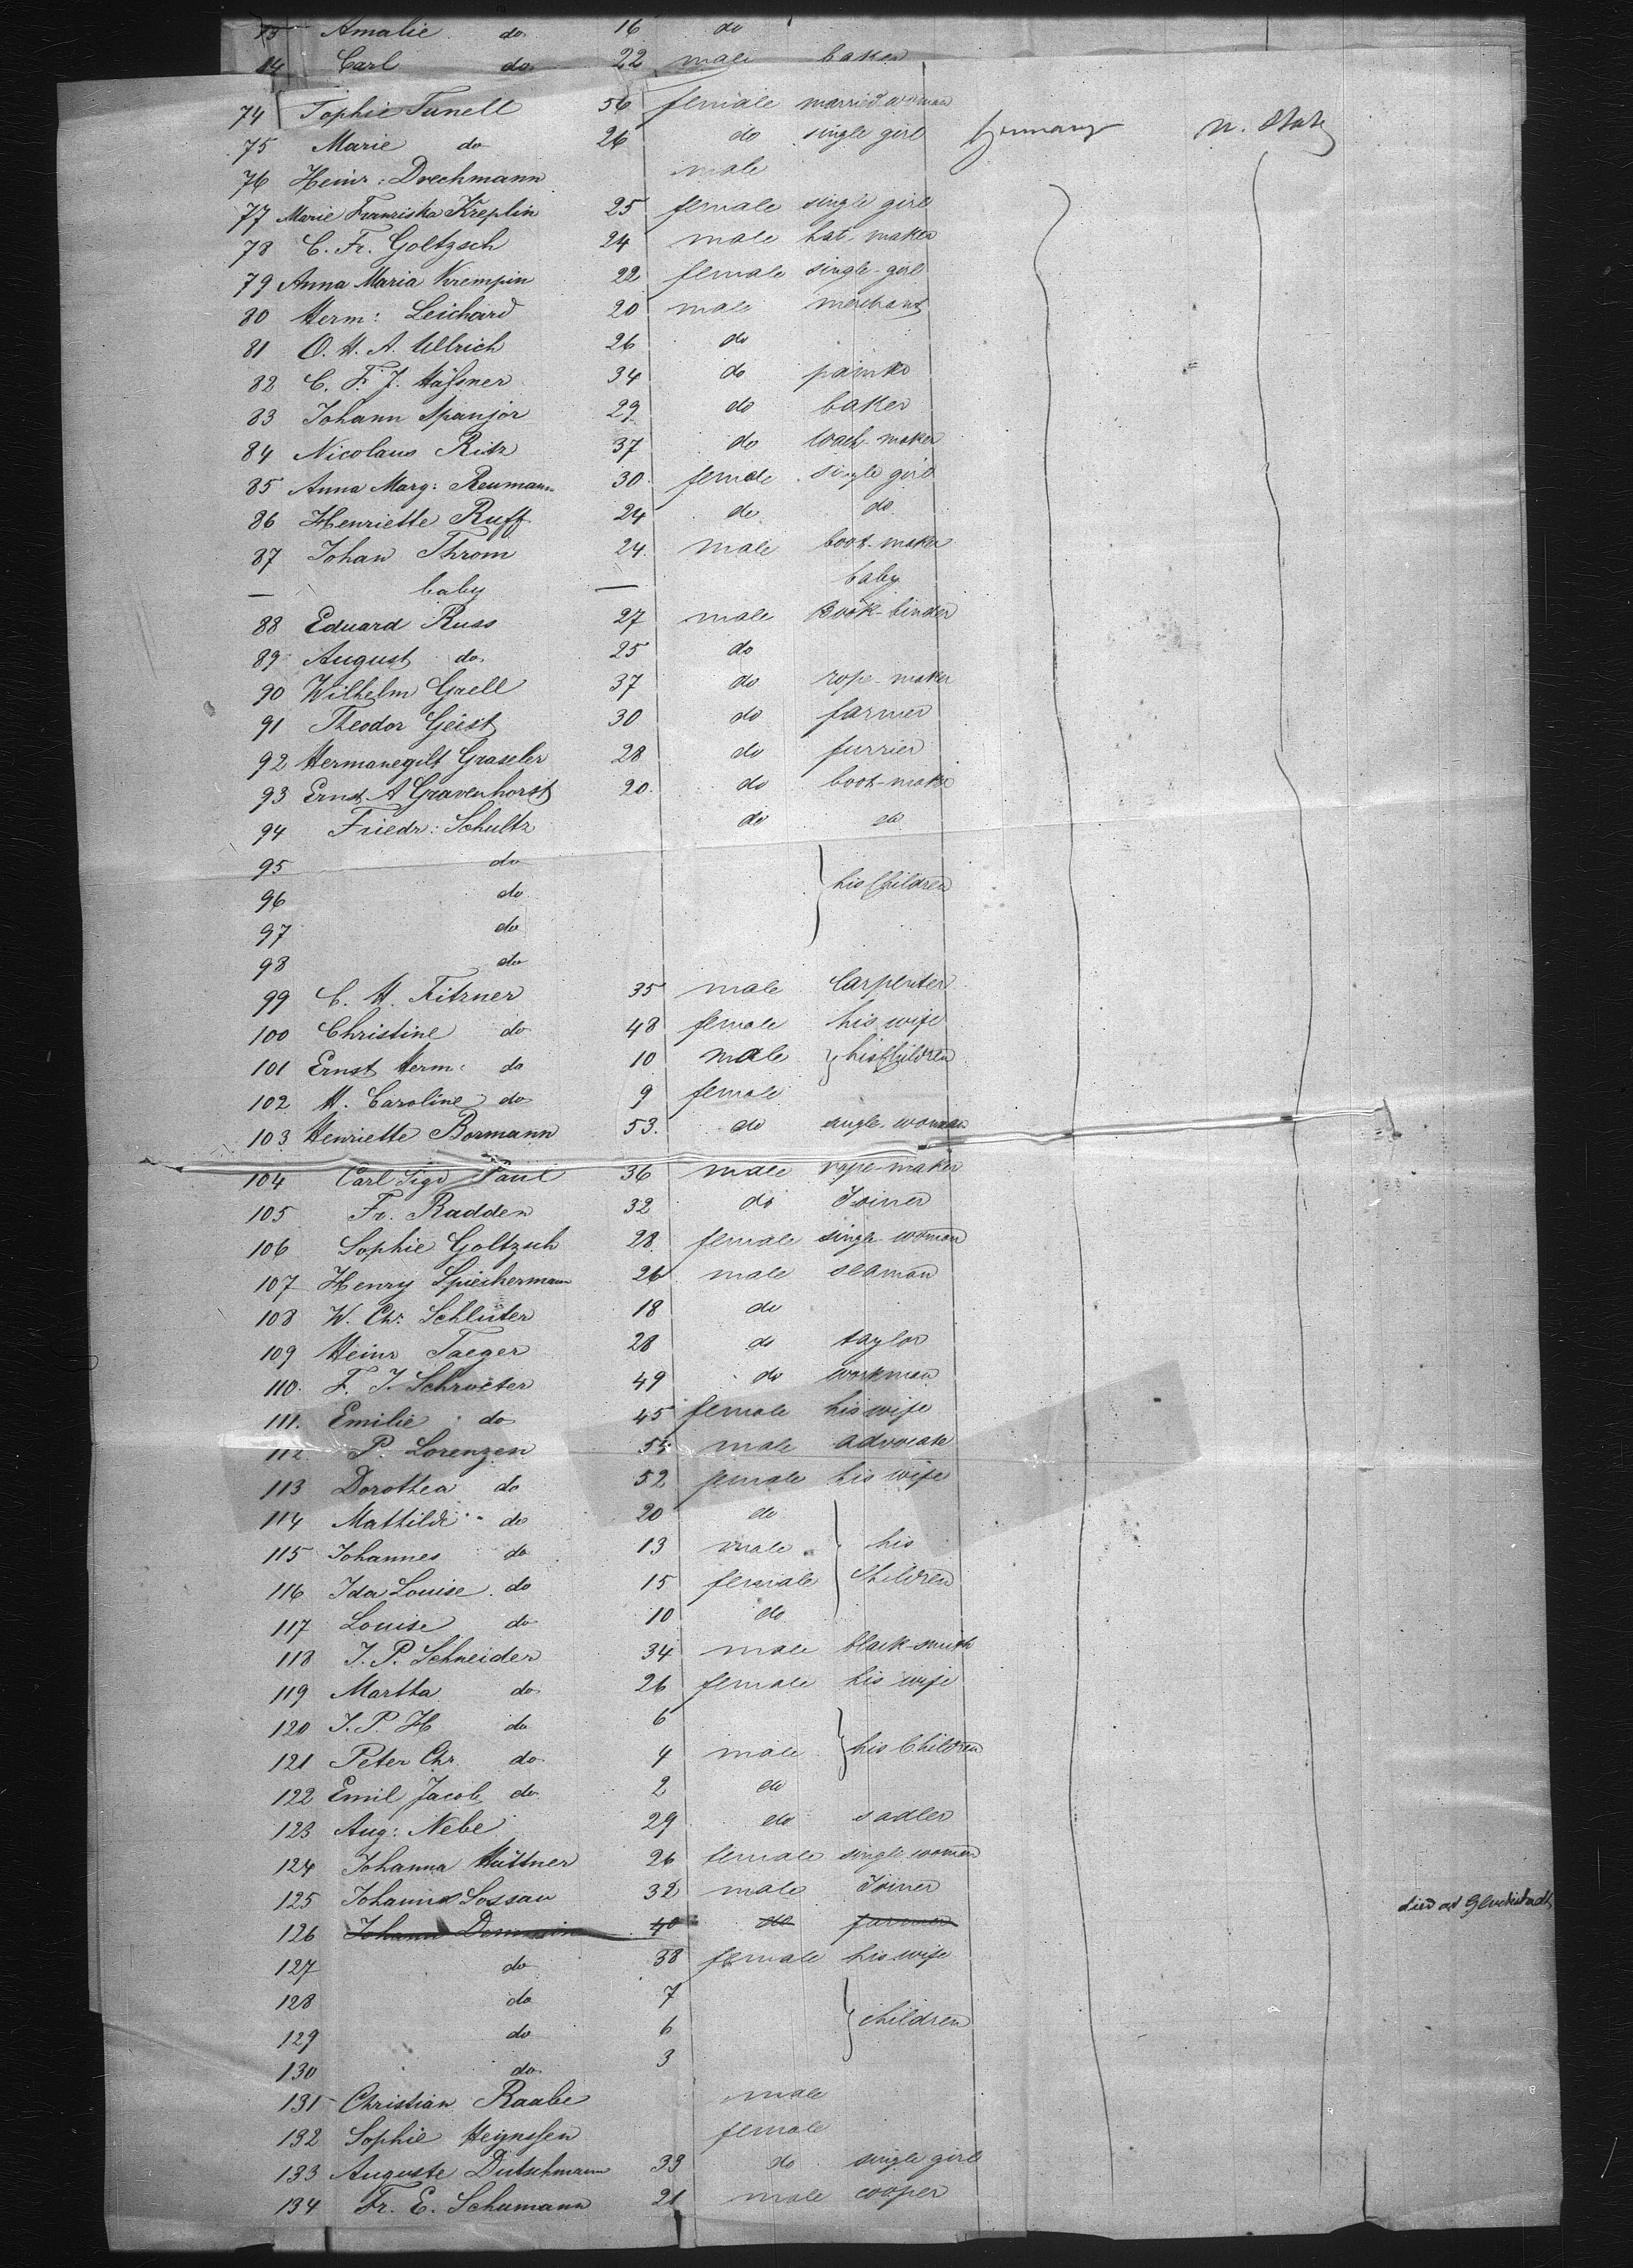 13 Amalie do 16 do
14 Carl do 22 male baker
74 Sophie Tunell 56 female married woman
75 Marie do 26 do single girl Germany U. State
76 Heinr: Drechmann male
77 Marie Franziska Kreplin 25 female single girl
78 C. Fr. Goltzsch 24 male hat maker
79 Anna Maria Krempin 22 female single girl
80 Herm: Leichard 20 male merchant
81 O. H. A. Ullrich 26 do
82 C. F. J. Häfsner 34 do
83 Johann Spanjor 29 do baker
84 Nicolaus Ritz 37 do coach-maker
85 Anna Marg: Reumann 30 female single girl
86 Henriette Ruff 24 do do
87 Johan Throm 24 male boot-maker
— baby — baby
88 Eduard Russ 27 male Book-binder
89 August do 25 do
90 Wilhelm Grell 37 do rope-maker
91 Theodor Geist 30 do farmer
92 Hermanegilt Graseler 28 do furrier
93 Ernst A Gravenhorst 20 do boot-maker
94 Friedr: Schultz do do
95 do
96 do his Children
97 do
98 do
99 C. H. Fitzner 35 male Carpenter
100 Christine do 48 female his wife
101 Ernst Herm: do 10 male his Children
102 H. Caroline do 9 female
103 Henriette Bormann 53 do single woman
104 Carl Sigd Paul 36 male rope-maker
105 Fr. Radden 32 do Joiner
106 Sophie Goltzsch 28 female single woman
107 Henry Spiechermann 26 male seaman
108 W. Chr. Schlüter 18 do
109 Heinr Taeger 28 do taylor
110 F. J. Schroeter 49 do workman
111 Emilie do 45 female his wife
112 P. Lorenzen 55 male advocate
113 Dorothea do 52 female his wife
114 Mathilde do 20 do
115 Johannes do 13 male his
116 Ida Louise do 15 female Children
117 Louise do 10 do
118 J. P. Schneider 34 male black-smith
119 Martha do 26 female his wife
120 J. P. H do 6
121 Peter Chr. do 4 male his Children
122 Emil Jacob do 2 do
123 Aug: Nebe 29 do sadler
124 Johanna Hüttner 26 female single woman
125 Johann Sossau 32 male Joiner
126 Johann 40 do farmer died at Gluckstadt
127 do 38 female his wife
128 do 7
129 do 6 children
130 do 3
131 Christian Raabe male
132 Sophie Heynssen female
133 Auguste Dutschmann 33 do single girl
134 Fr. E. Schumann 21 male cooper